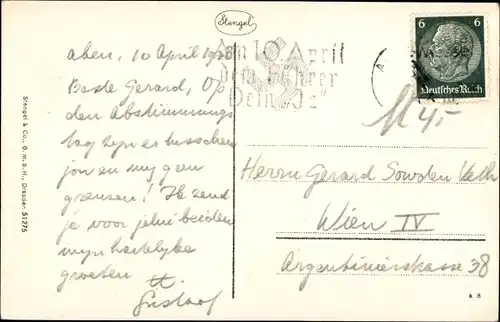 Stengel
6 6
Deutsches Reich
Am 10. April
dem Führer
Dein "Ja"
Aben, 10 April 1938
Beste Gerard, Op
den Abstimmungs
tag zijn er tusschen
jou en mij geen
grenzen! Ik zend
je voor jelui beiden
mijn hartelijke
groeten
Gustaaf
M 45,-
Herrn Gerard Sowden
Wien IV
Argentinierstrasse 38
Stengel & Co., G.m.b.H., Dresden 51275